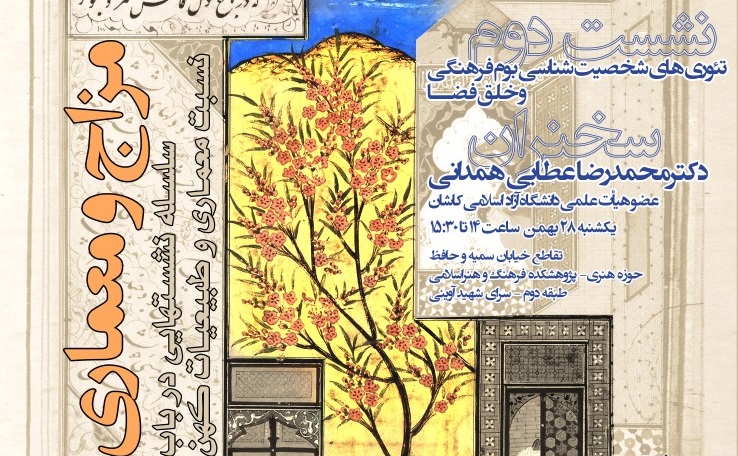 نشست دوم
تئوری های شخصیت شناسی بوم فرهنگی
و خلق فضا
سخنران
دکتر محمدرضا عطایی همدانی
عضو هیأت علمی دانشگاه آزاد اسلامی کاشان
یکشنبه ۲۸ بهمن ساعت ۱۴ تا ۱۵:۳۰
تقاطع خیابان سمیه و حافظ
حوزه هنری - پژوهشکده فرهنگ و هنر اسلامی
طبقه دوم - سرای شهید آوینی
مزاج و معماری
سلسله نشستهایی در باب
نسبت معماری و طبیعیات کهن